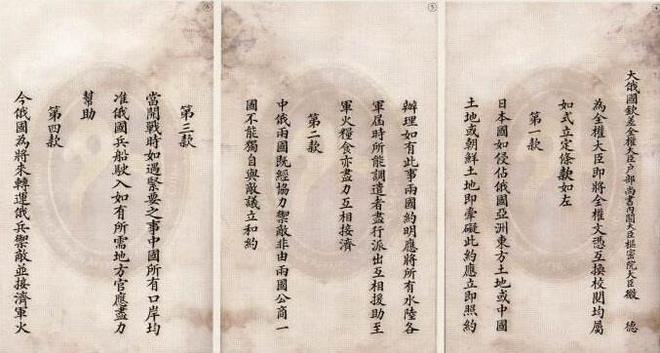 大俄國欽差全權大臣戶部尚書內閣大臣樞密院大臣微 德
為全權大臣即將全權文憑互換校閱均屬
如式立定條款如左
第一款
日本國如侵佔俄國亞洲東方土地或中國
土地或朝鮮土地即牽礙此約應立即照約
辦理如有此事兩國約明應將所有水陸各
軍屆時所能調遣者盡行派出互相援助至
軍火糧食亦盡力互相接濟
第二款
中俄兩國既經協力禦敵非由兩國公商一
國不能獨自與敵議立和約
第三款
當開戰時如遇緊要之事中國所有口岸均
准俄國兵船駛入如有所需地方官應盡力
幫助
第四款
今俄國為將來轉運俄兵禦敵並接濟軍火